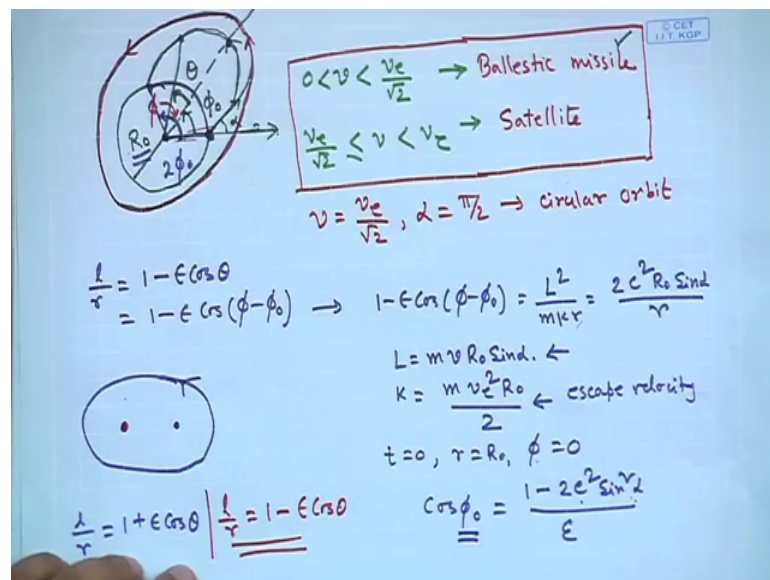 © CET
I.I.T. KGP
θ
ϕ
ϕ₀
α
R₀
2ϕ₀
0 < v < ve/√2 → Ballestic missile
ve/√2 ≤ v < ve → Satellite
v = ve/√2, α = π/2 → cirular orbit
l/r = 1 - ϵ Cos θ
= 1 - ϵ Cos (ϕ - ϕ₀) → 1 - ϵ Cos (ϕ - ϕ₀) = L²/mKr = 2e² R₀ Sin α/r
L = m v R₀ Sin α. ←
K = m ve² R₀/2 ← escape velocity
t = 0, r = R₀, ϕ = 0
l/r = 1 + ϵ Cos θ | l/r = 1 - ϵ Cos θ
Cos ϕ₀ = 1 - 2e² Sin² α/ε